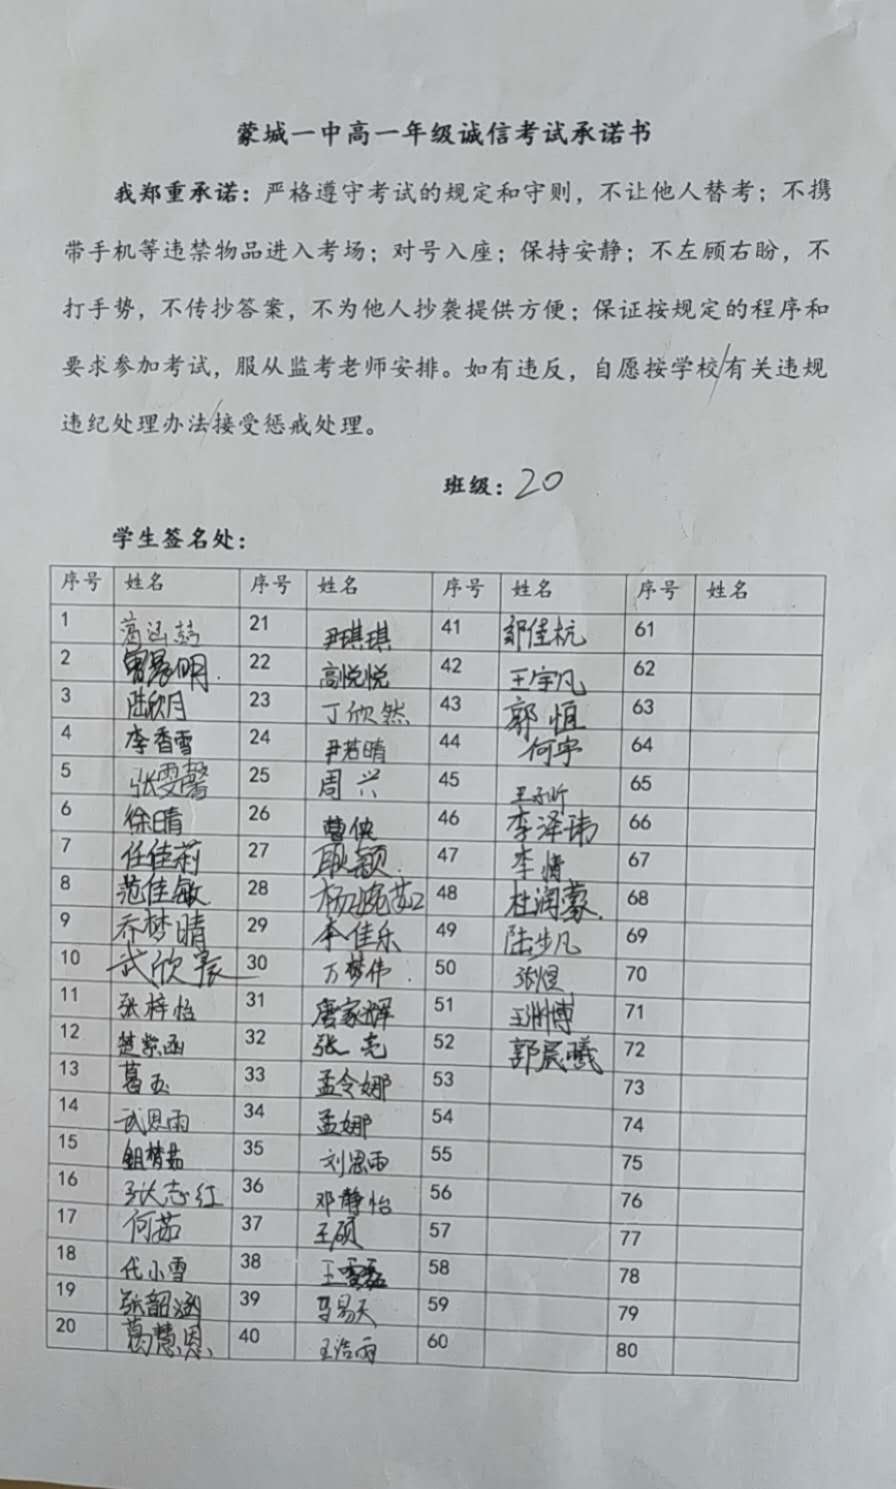 蒙城一中高一年级诚信考试承诺书
我郑重承诺：严格遵守考试的规定和守则，不让他人替考；不携
带手机等违禁物品进入考场；对号入座；保持安静；不左顾右盼，不
打手势，不传抄答案，不为他人抄袭提供方便；保证按规定的程序和
要求参加考试，服从监考老师安排。如有违反，自愿按学校有关违规
违纪处理办法接受惩戒处理。
班级：20
学生签名处：
序号 姓名 序号 姓名 序号 姓名 序号 姓名
1 21 尹琪琪 41 邹佳杭 61
2 22 高悦悦 42 王宇凡 62
3 陆欣月 23 丁欣然 43 郭恒 63
4 李香雪 24 尹若晴 44 何宇 64
5 张雯馨 25 周兴 45 65
6 徐晴 26 曹侠 46 李泽玮 66
7 任佳莉 27 耿颖 47 李倩 67
8 范佳敏 28 杨婉茹 48 杜润蒙 68
9 乔梦晴 29 李佳乐 49 陆步凡 69
10 武欣宸 30 万梦伟 50 张煜 70
11 张梓怡 31 唐家辉 51 王洲博 71
12 楚紫函 32 张亮 52 郭宸曦 72
13 葛玉 33 孟令娜 53 73
14 武恩雨 34 孟娜 54 74
15 35 刘恩雨 55 75
16 张志红 36 邓静怡 56 76
17 何茹 37 王硕 57 77
18 代小雪 38 58 78
19 张韶涵 39 马易天 59 79
20 葛慧恩 40 王浩雨 60 80